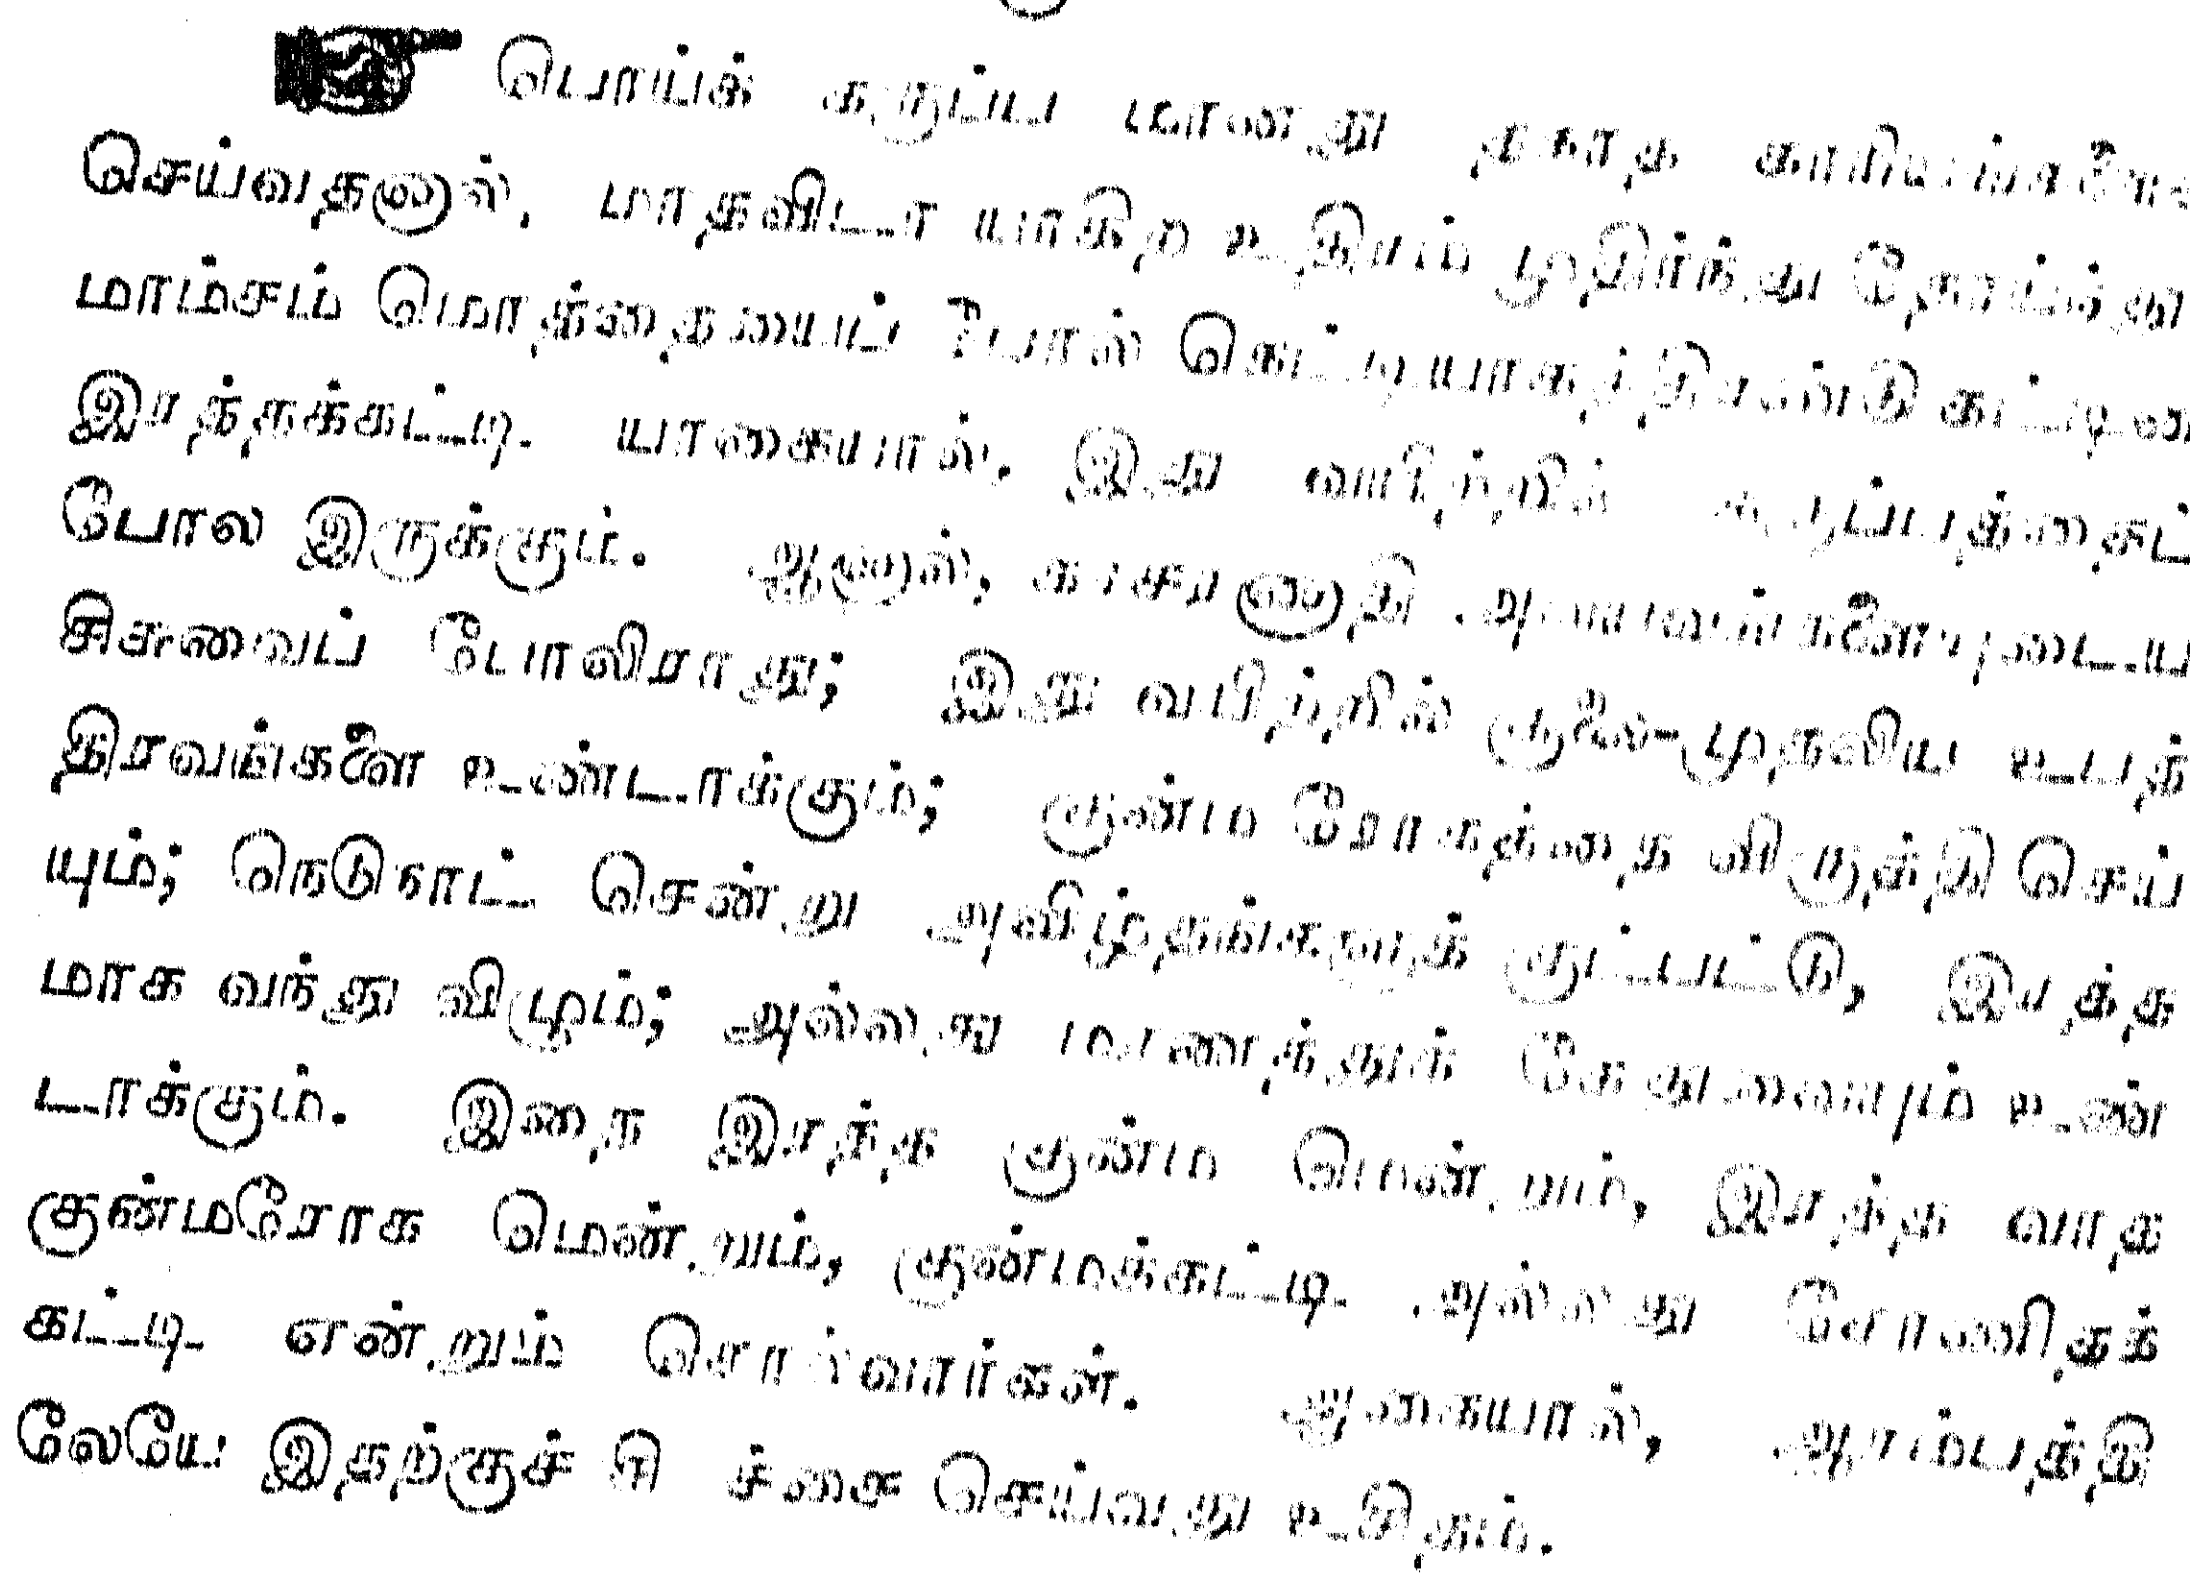 பொய்க் கருப்ப மானது தகாத காரியங்களைச்
செய்வதனால், மாதவிடா யாகிற உதிரம் முதிர்ந்து தோய்ந்து
மாம்சம் மொத்தையைப் போல் கெட்டியாகத்திரண்டு கட்டின
இரத்தக்கட்டி யாகையால், இது வயிற்றில் கருப்பத்தைப்
போல இருக்கும். ஆனால், கரசரணாதி அவயவங்களையுடைய
சிசுவைப் போலிராது; இது வயிற்றில் சூலை-முதலிய உபத்
திரவங்களை உண்டாக்கும்; குன்ம ரோகத்தை விருத்தி செய்
யும்; நெடுநாட் சென்று அவிழ்தங்களுக் குட்பட்டு, இரத்த
மாக வந்து விழும்; அல்லது மரணத்துக் கேதுவையும் உண்
டாக்கும். இதை இரத்த குன்ம மென்றும், இரத்த வாத
குன்மரோக மென்றும், குன்மக்கட்டி அல்லது சோணிதக்
கட்டி என்றும் சொல்வார்கள். ஆகையால், ஆரம்பத்தி
லேயே இதற்குச் செய்வது உசிதம்.